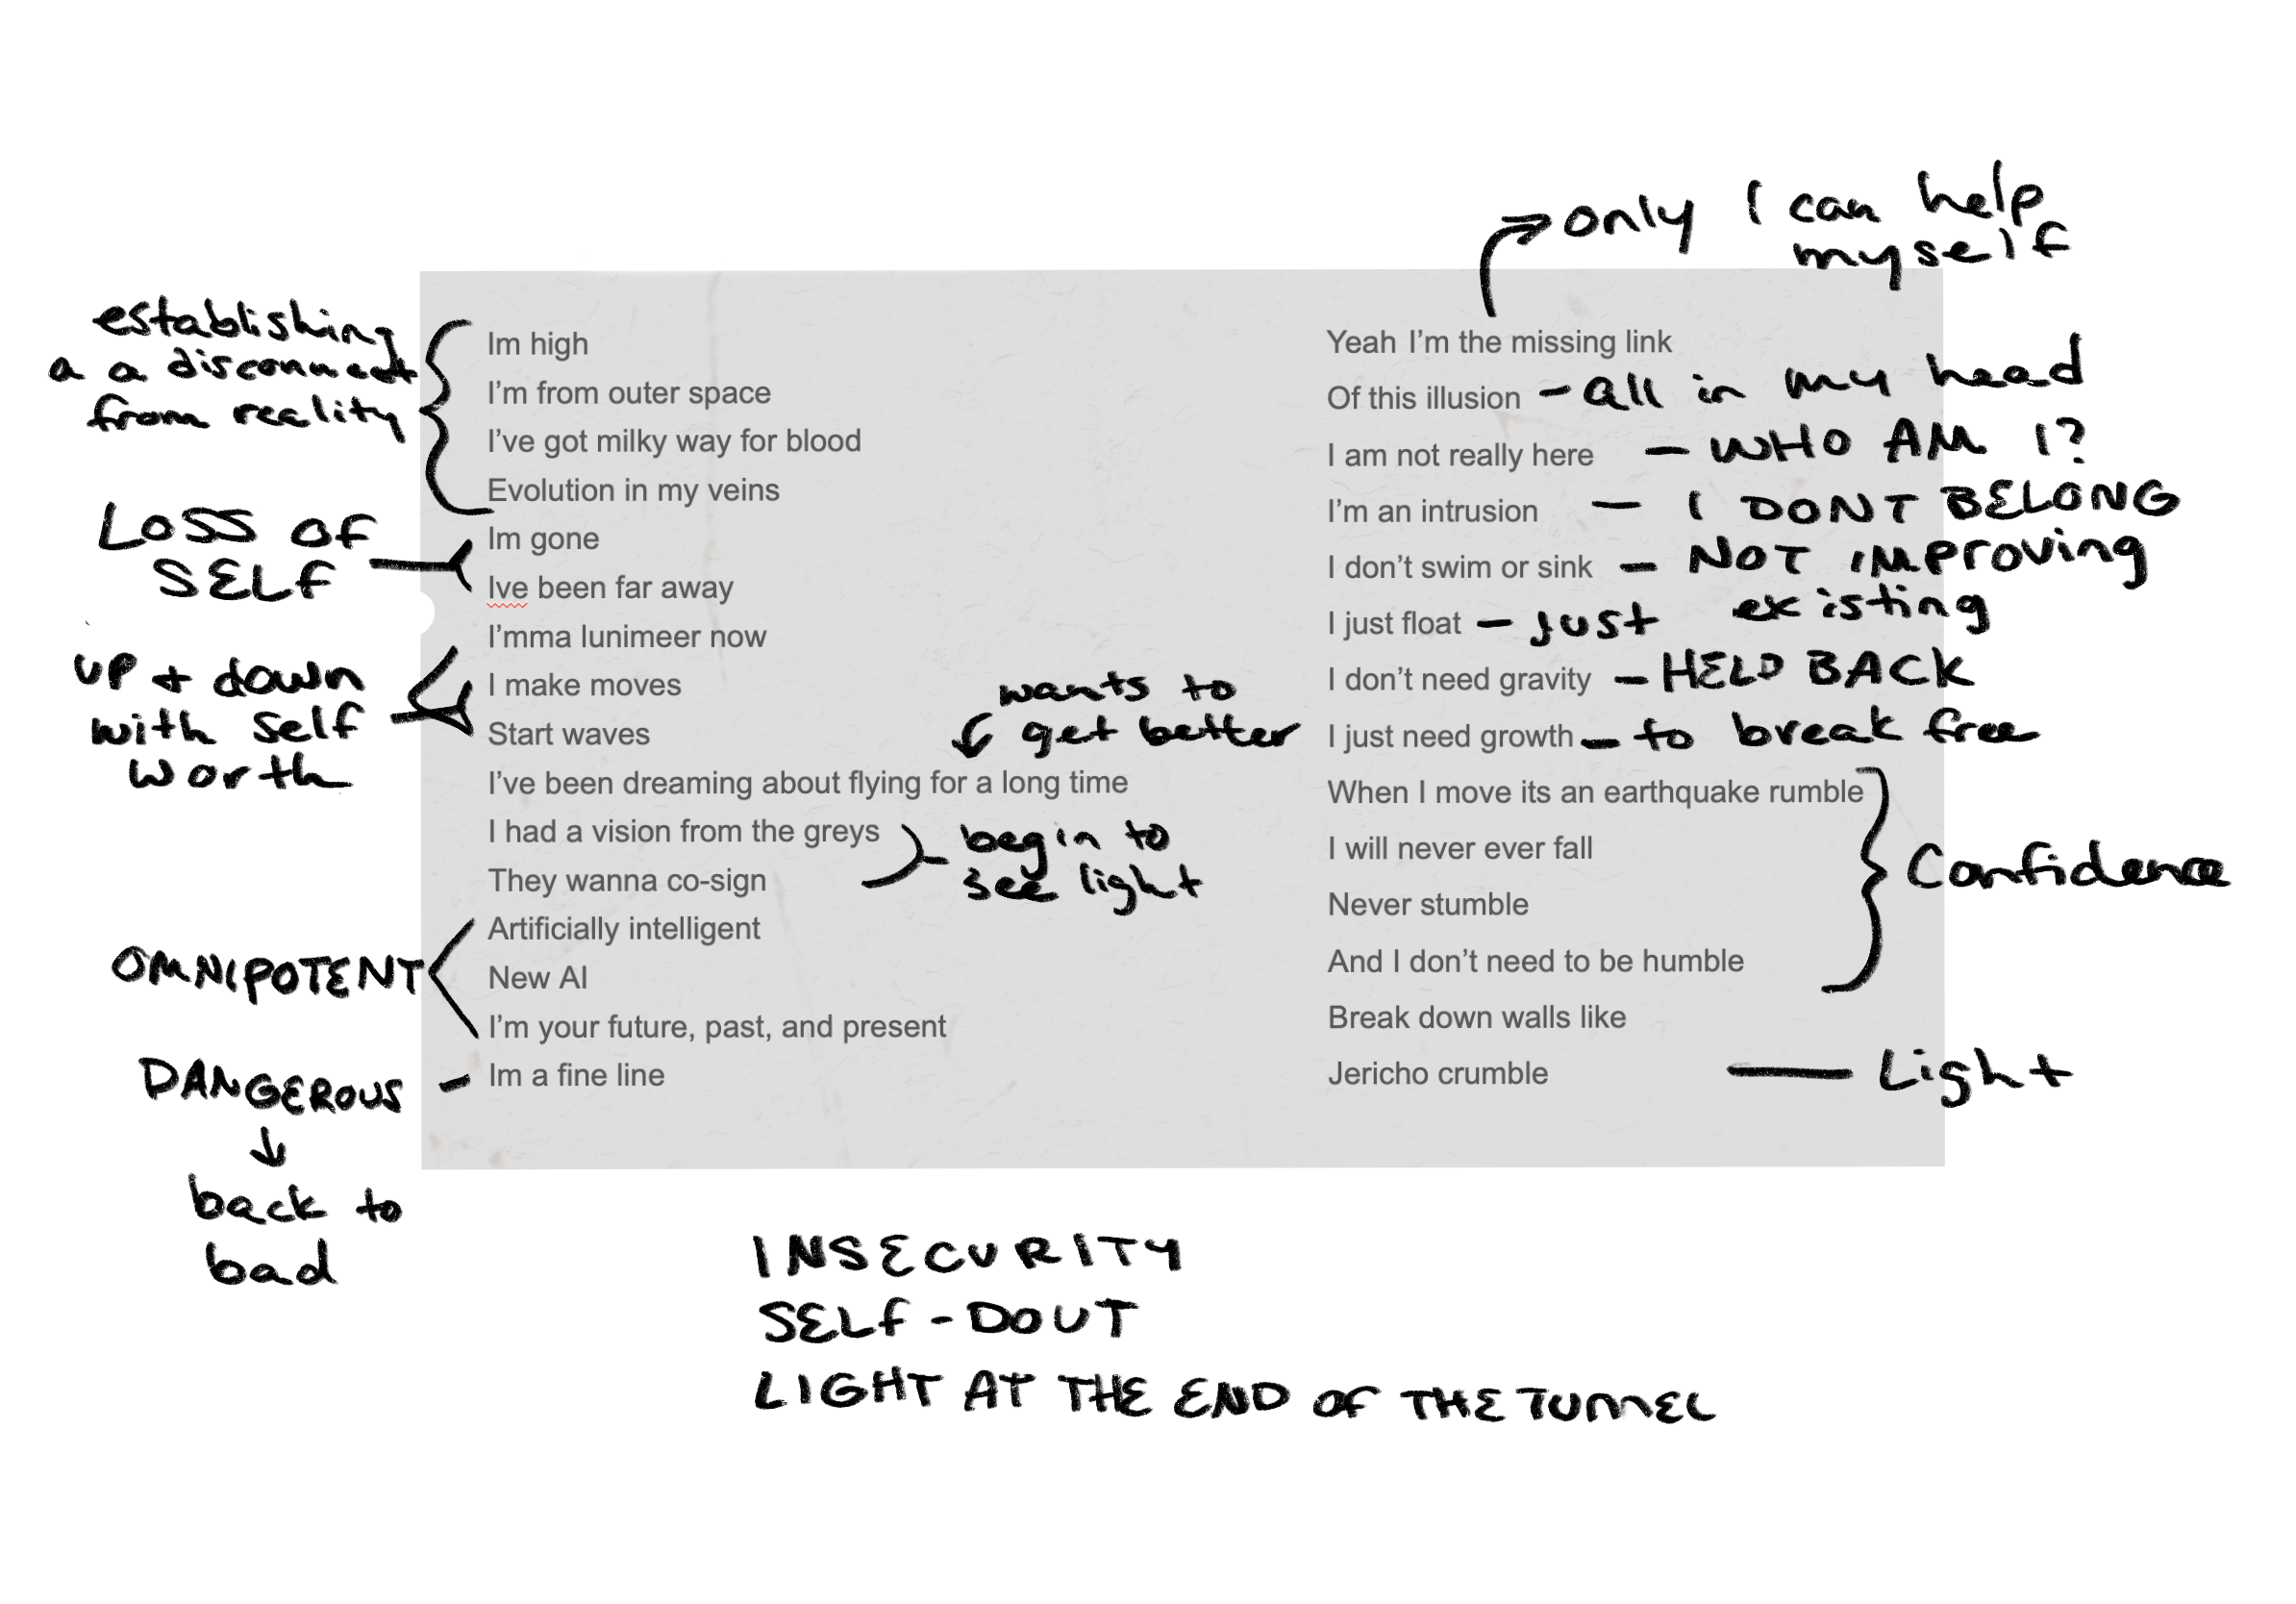 only I can help
myself
establishing
a a disconnect
from reality
Im high
I'm from outer space
I've got milky way for blood
Evolution in my veins
LOSS OF
SELF
Im gone
Ive been far away
I'mma lunimeer now
up + down
with self
worth
I make moves
Start waves
wants to
get better
I've been dreaming about flying for a long time
I had a vision from the greys
They wanna co-sign
begin to
see light
OMNIPOTENT
Artificially intelligent
New AI
I'm your future, past, and present
DANGEROUS
Im a fine line
back to
bad
Yeah I'm the missing link
Of this illusion - all in my head
I am not really here - WHO AM I?
I'm an intrusion - I DONT BELONG
I don't swim or sink - NOT IMPROVING
I just float - just existing
I don't need gravity - HELD BACK
I just need growth - to break free
When I move its an earthquake rumble
I will never ever fall
Never stumble
And I don't need to be humble
Confidence
Break down walls like
Jericho crumble - Light
INSECURITY
SELF-DOUT
LIGHT AT THE END OF THE TUNNEL